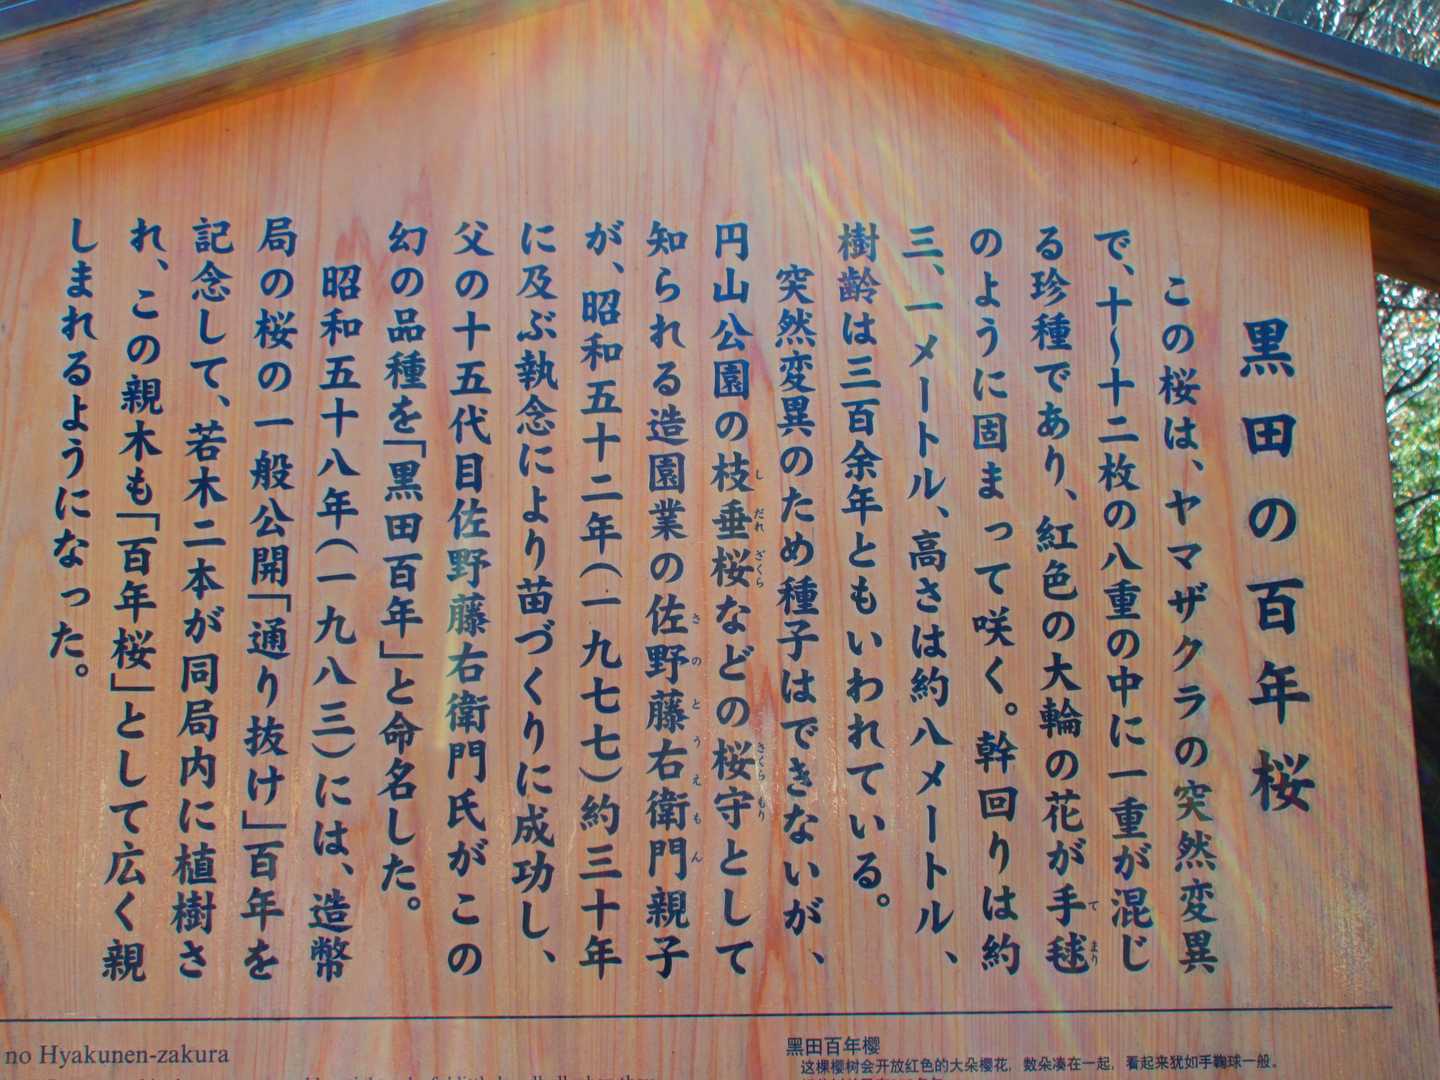 黒田の百年桜
この桜は、ヤマザクラの突然変異
で、十〜十二枚の八重の中に一重が混じ
る珍種であり、紅色の大輪の花が手毬
のように固まって咲く。幹回りは約
三、一メートル、高さは約八メートル、
樹齢は三百余年ともいわれている。
突然変異のため種子はできないが、
円山公園の枝垂桜などの桜守として
知られる造園業の佐野藤右衛門親子
が、昭和五十二年(一九七七)約三十年
に及ぶ執念により苗づくりに成功し、
父の十五代目佐野藤右衛門氏がこの
幻の品種を「黒田百年」と命名した。
昭和五十八年(一九八三)には、造幣
局の桜の一般公開「通り抜け」百年を
記念して、若木二本が同局内に植樹さ
れ、この親木も「百年桜」として広く親
しまれるようになった。
no Hyakunen-zakura
黑田百年樱
这棵樱树会开放红色的大朵樱花，数朵凑在一起，看起来犹如手鞠球一般。